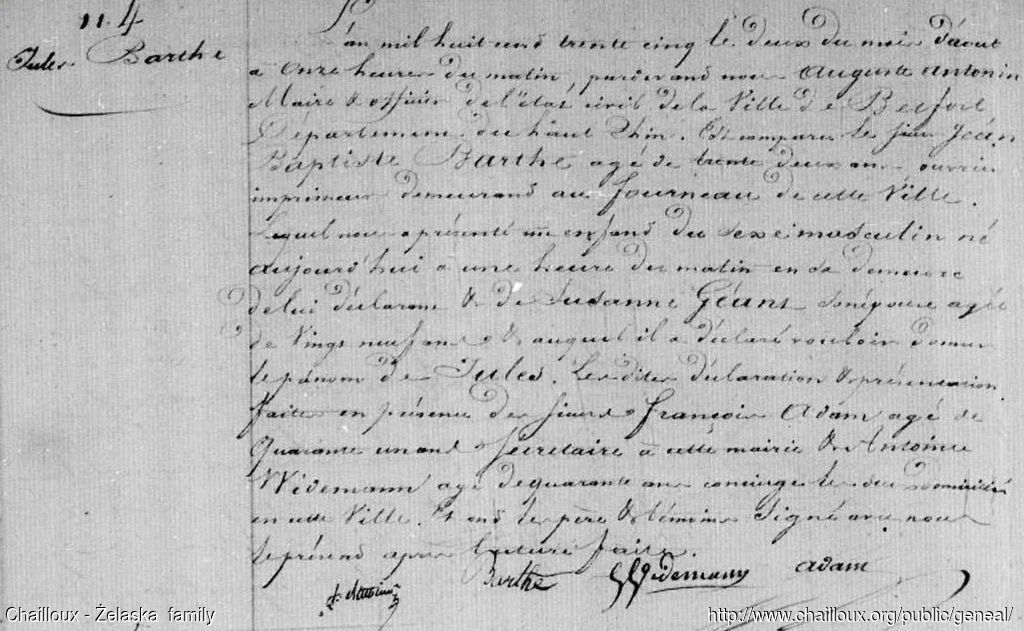 114
Jules Barthe
L'an mil huit cend trente cinq le deux du mois d'aout
a onze heures du matin, pardevand nous Auguste Antonin
Maire & officier de l'état civil de la Ville de Belfort
Département du haut Rhin. Est comparu le sieur Jean
Baptiste Barthe agé de trente deux ans ouvrier
imprimeur demeurand au fourneau de cette Ville.
Lequel nous a présenté un enfand du sexe masculin né
aujourd'hui a une heure du matin en sa demeure
de lui déclarant & de Susanne Géant son épouse agée
de Vingt neuf ans & auquel il a déclaré vouloir donner
le prénom de Jules. Les dites déclaration & présentation
faites en présence des sieurs françois Adam agé de
Quarante un ans Sécretaire à cette mairie & Antoine
Widemann agé de quarante ans concierge les deux domiciliés
en cette Ville. Et ond les père & témoins Signé avec nous
le présend après lecture faite.
Barthe Widemann Adam
Chailloux - Żelaska family
http://www.chailloux.org/public/geneal/